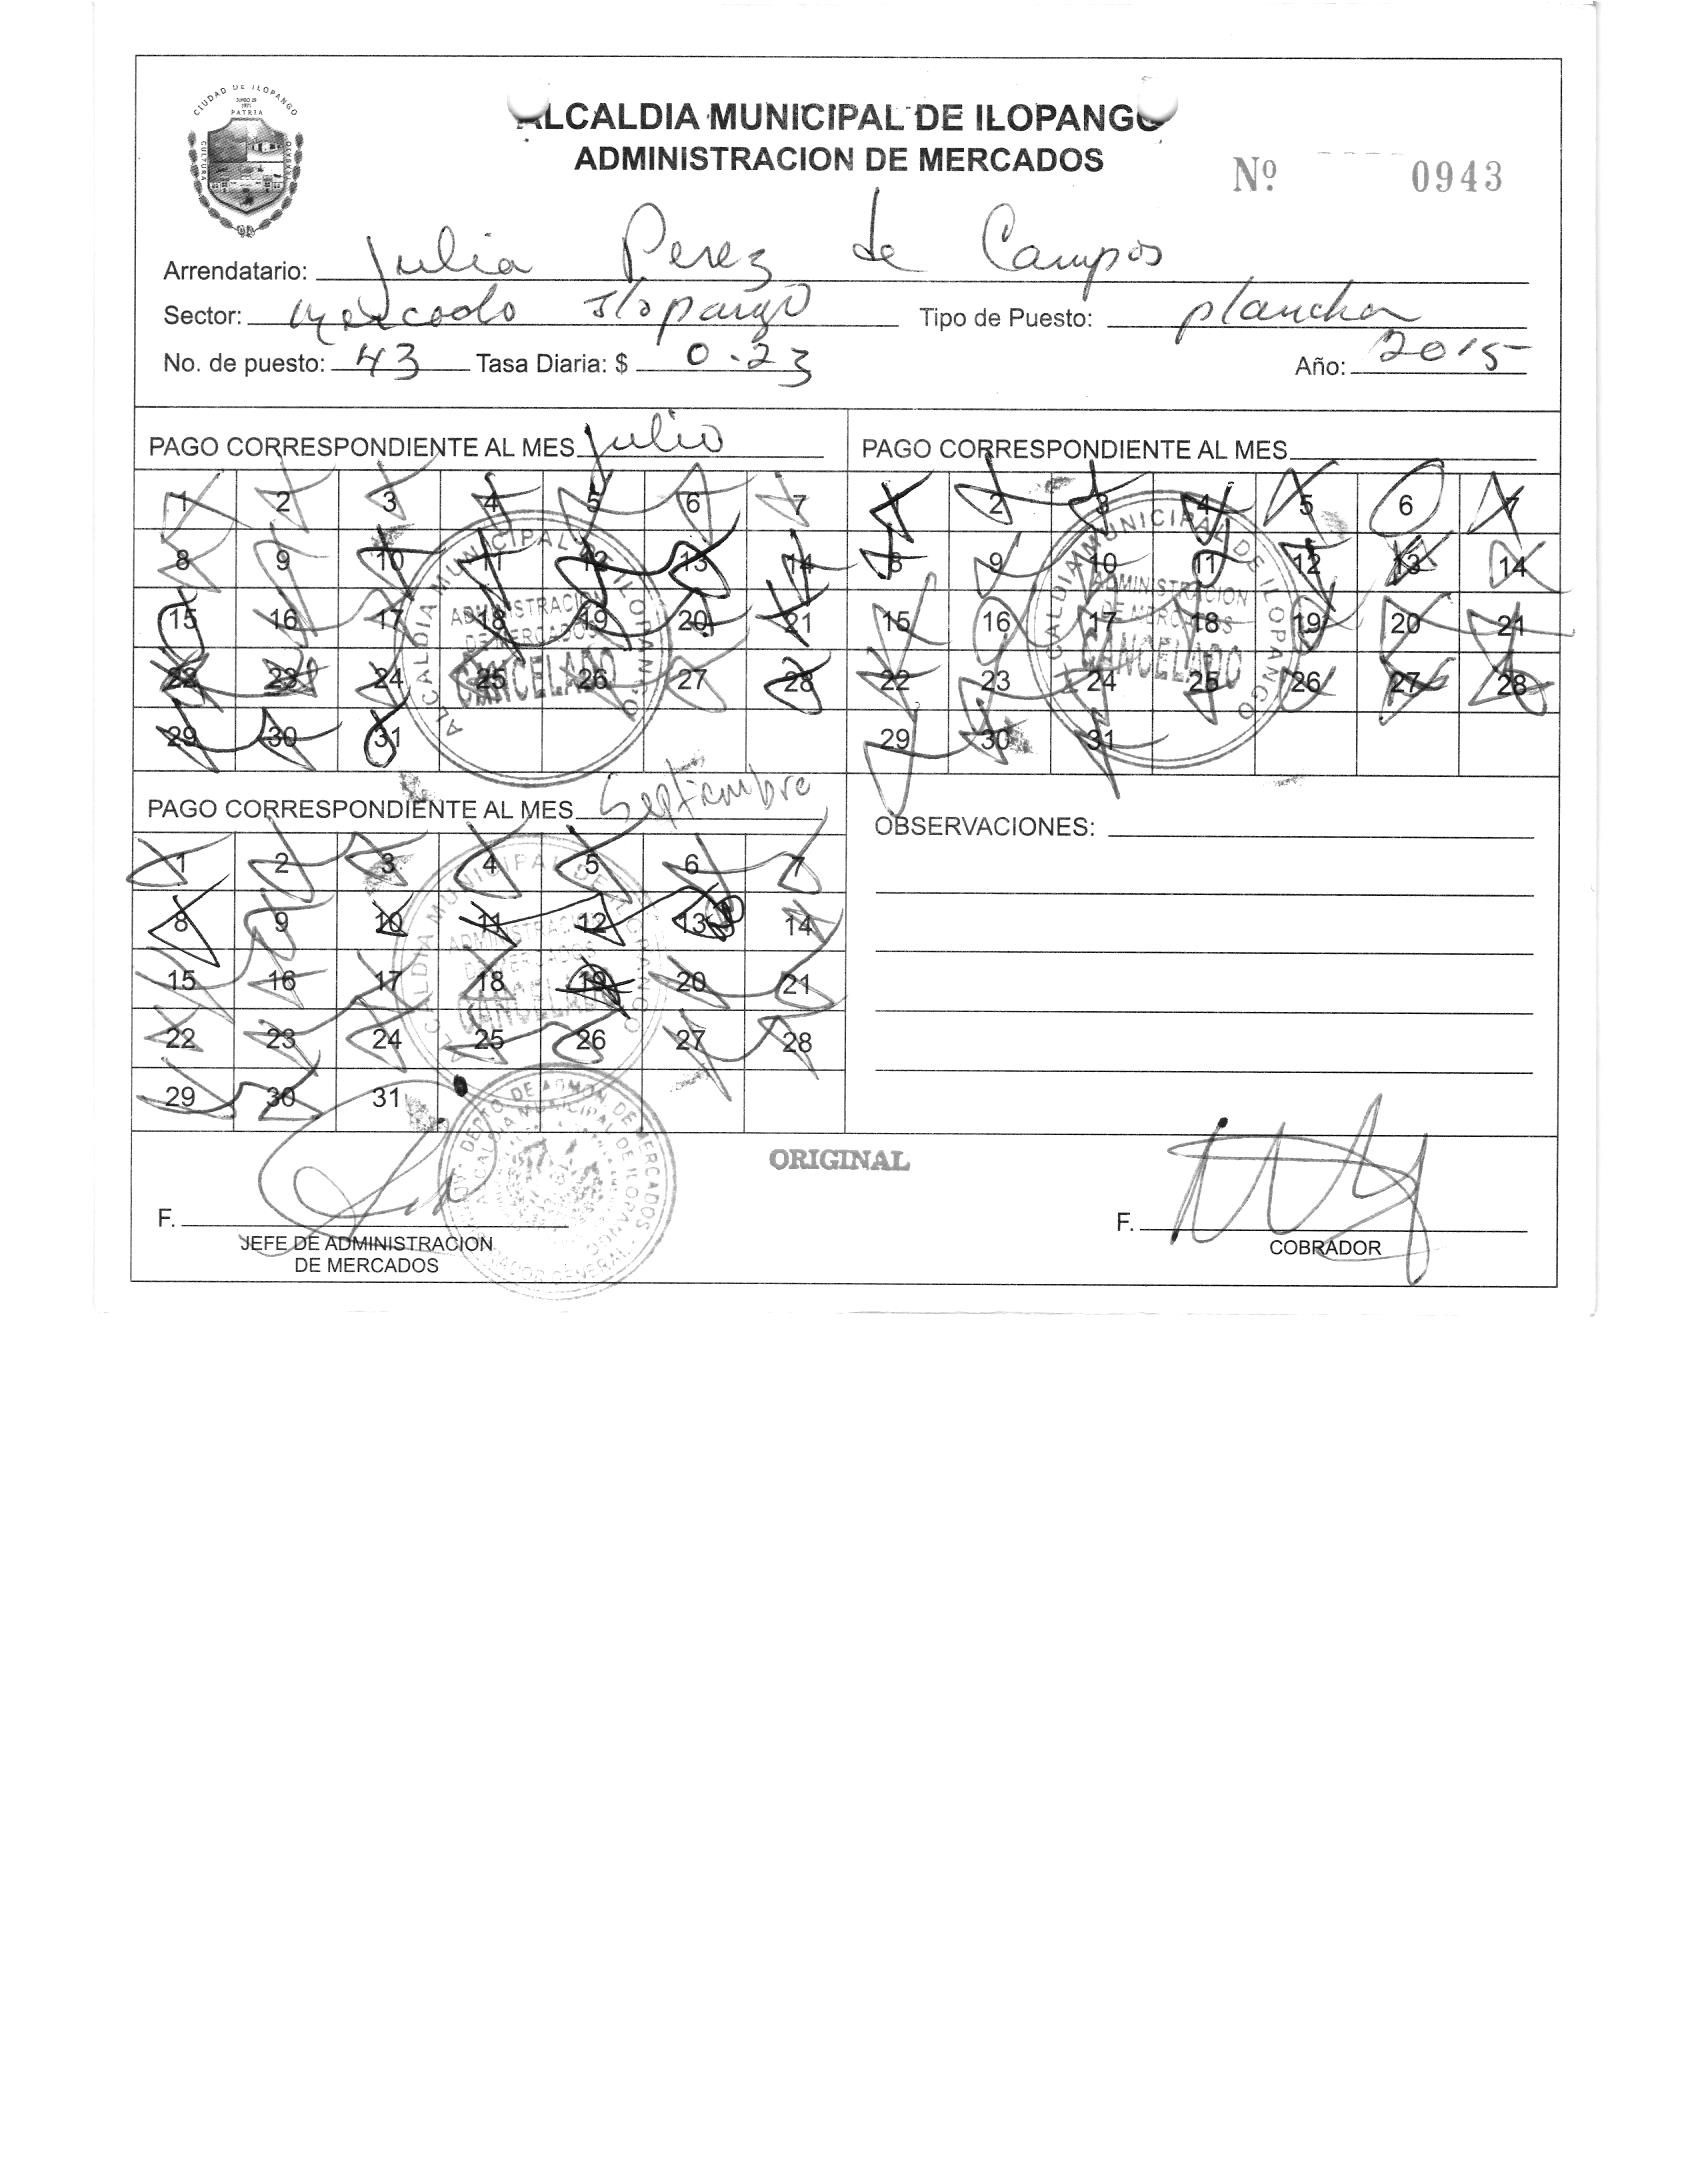 CIUDAD DE ILOPANGO
JUNIO 29
1971
PATRIA
CULTURA
ALCALDIA MUNICIPAL DE ILOPANGO
ADMINISTRACION DE MERCADOS
Nº 0943
Arrendatario: Julia Perez de Campos
Sector: mercado Ilopango Tipo de Puesto: plancha
No. de puesto: 43 Tasa Diaria: $ 0.23 Año: 2015
PAGO CORRESPONDIENTE AL MES Julio
1 2 3 4 5 6 7
8 9 10 11 12 13 14
15 16 17 18 19 20 21
22 23 24 25 26 27 28
29 30 31
ALCALDIA MUNICIPAL ILOPANGO
ADMINISTRACION
DE MERCADOS
CANCELADO
PAGO CORRESPONDIENTE AL MES
1 2 3 4 5 6 7
8 9 10 11 12 13 14
15 16 17 18 19 20 21
22 23 24 25 26 27 28
29 30 31
ALCALDIA MUNICIPAL DE ILOPANGO
ADMINISTRACION
DE MERCADOS
CANCELADO
PAGO CORRESPONDIENTE AL MES Septiembre
1 2 3 4 5 6 7
8 9 10 11 12 13 14
15 16 17 18 19 20 21
22 23 24 25 26 27 28
29 30 31
ALCALDIA MUNICIPAL DE ILOPANGO
ADMINISTRACION
DE MERCADOS
CANCELADO
OBSERVACIONES:
DEPTO DE ADMON. DE MERCADOS
ALCALDIA MUNICIPAL DE ILOPANGO
ORIGINAL
F.
JEFE DE ADMINISTRACION
DE MERCADOS
F.
COBRADOR